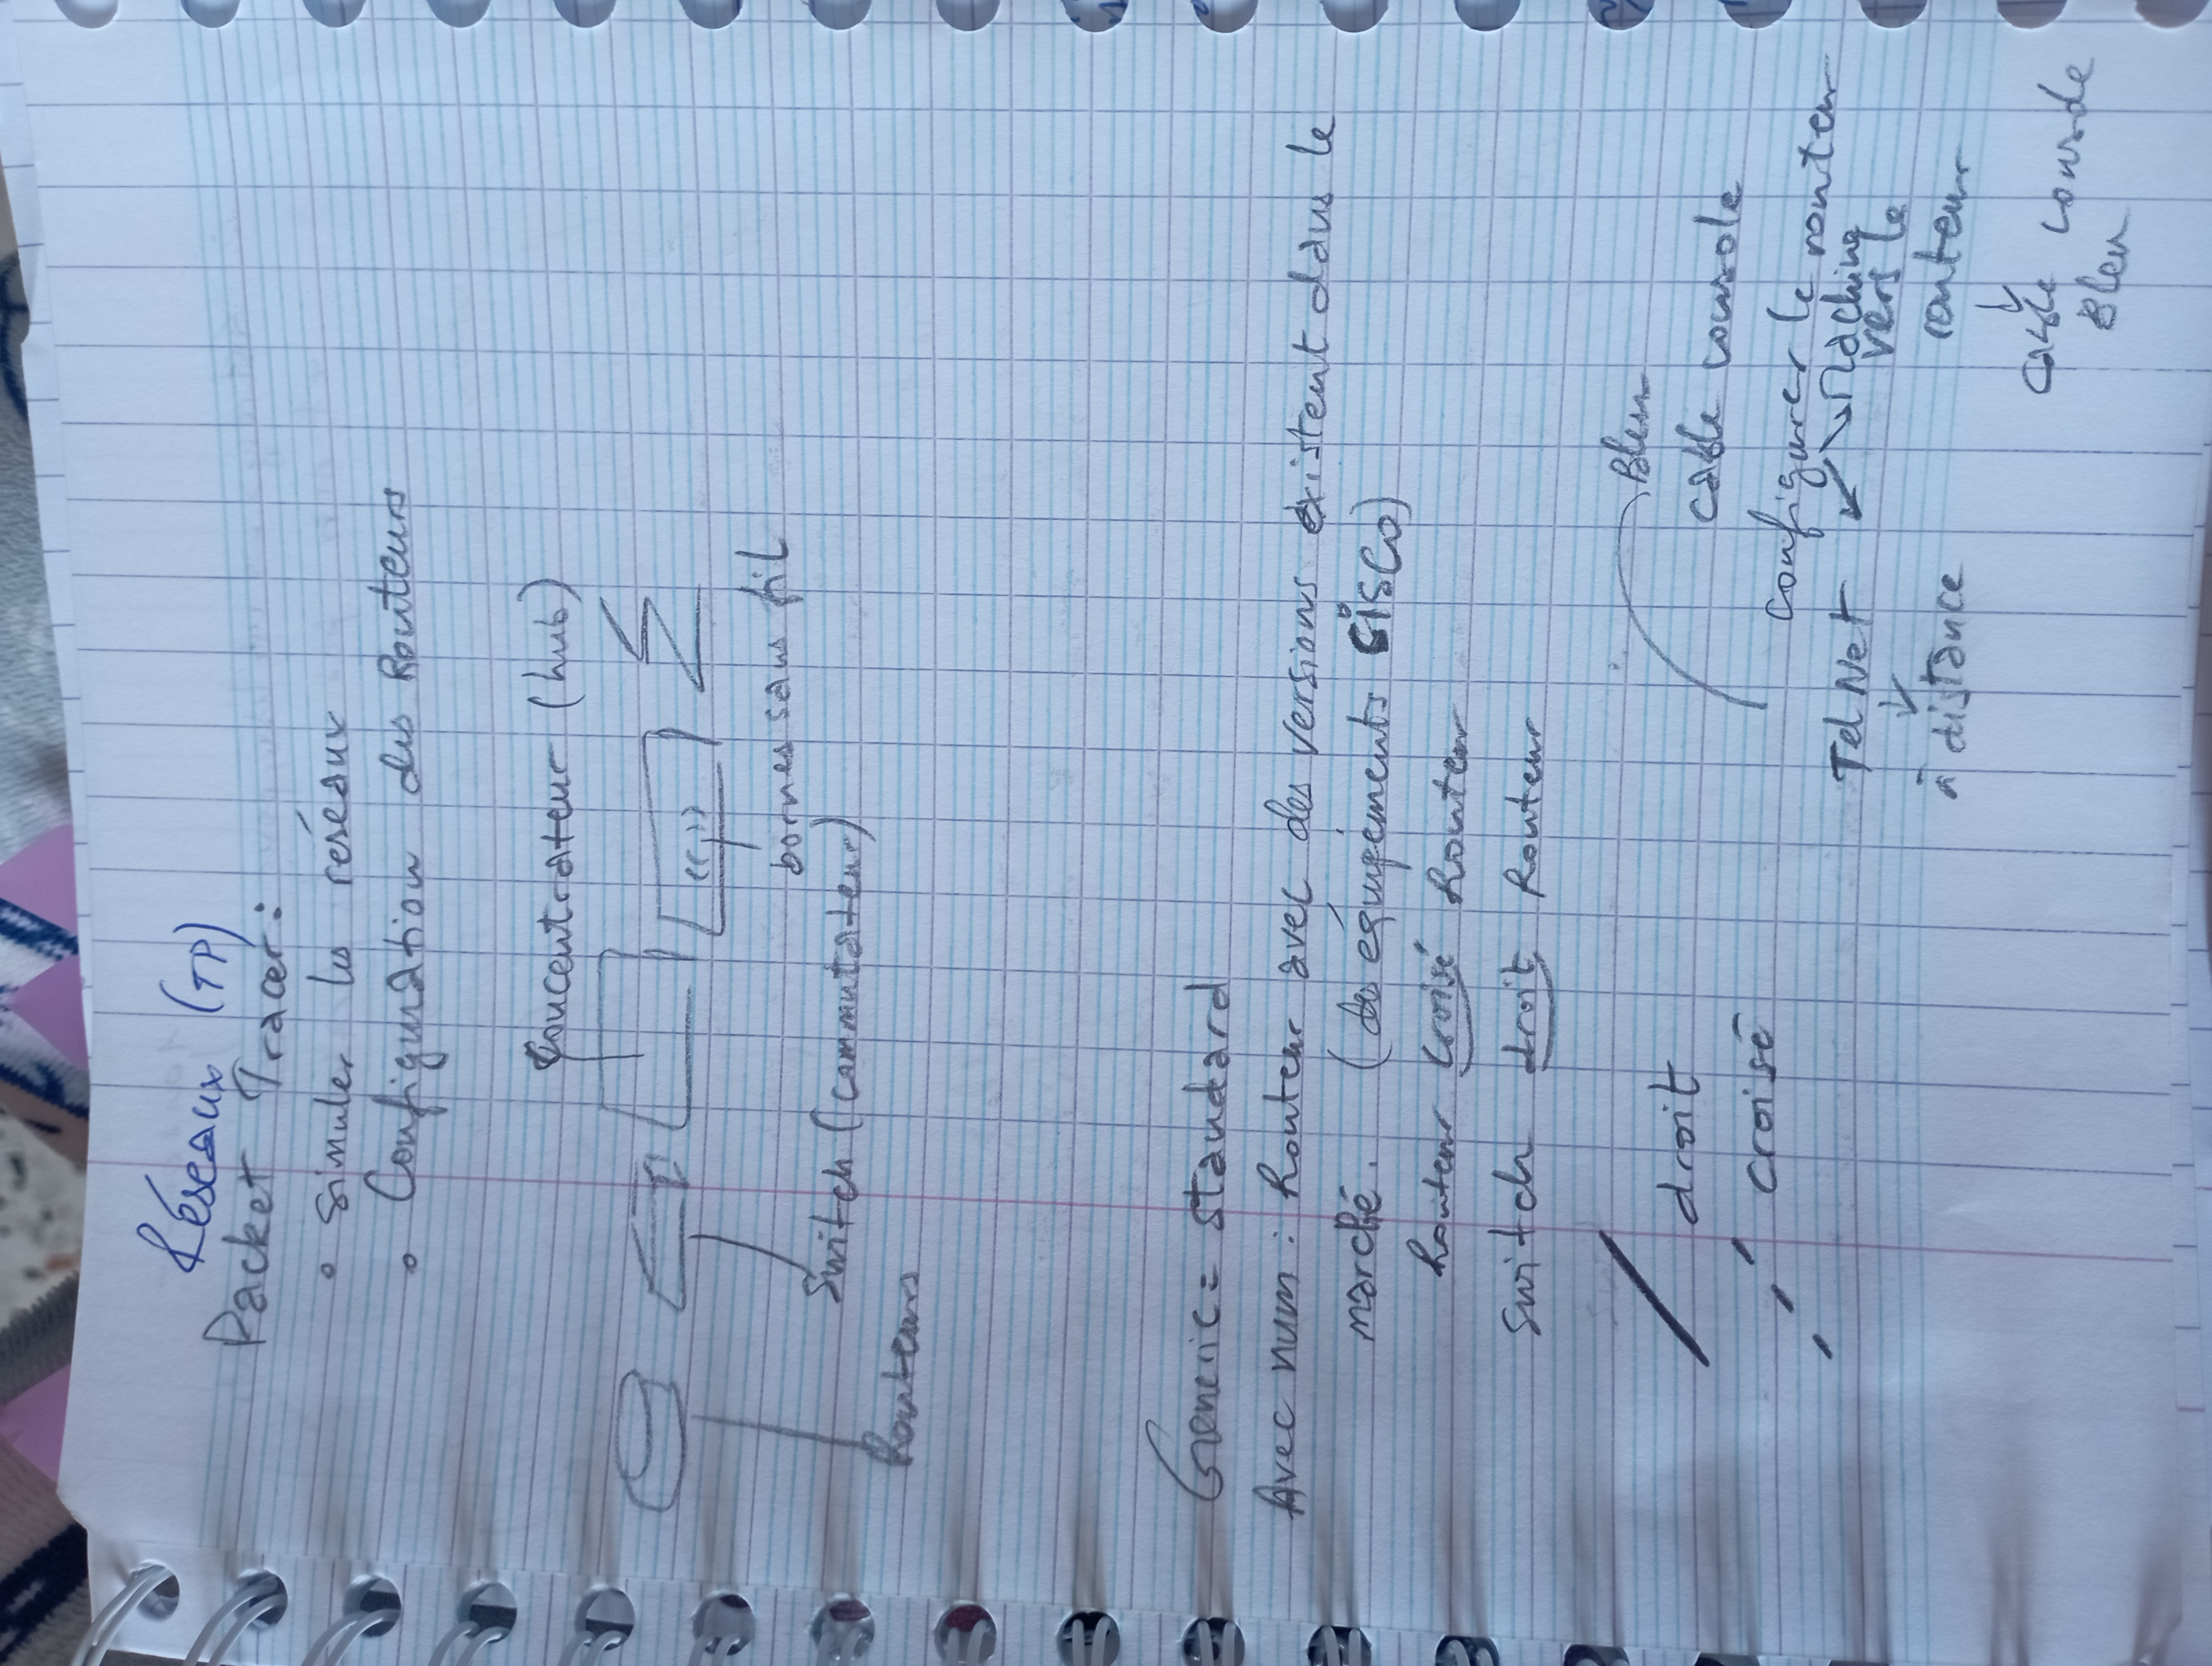 Réseaux (TP)
Packet Tracer:
• simuler les réseaux
• Configuration des Routeurs
Concentrateur (hub)
((,))
bornes sans fil
Switch (commutateur)
Routeurs
Generic = standard
Avec num : Routeur avec des versions existent dans le
marché. (des équipéments CISCO)
Routeur croisé Routeur
switch droit Routeur
Bleu
droit
cable console
croisé
configurer le routeur
Tel Net
Machine
vers le
routeur
à distance
cable console
Bleu